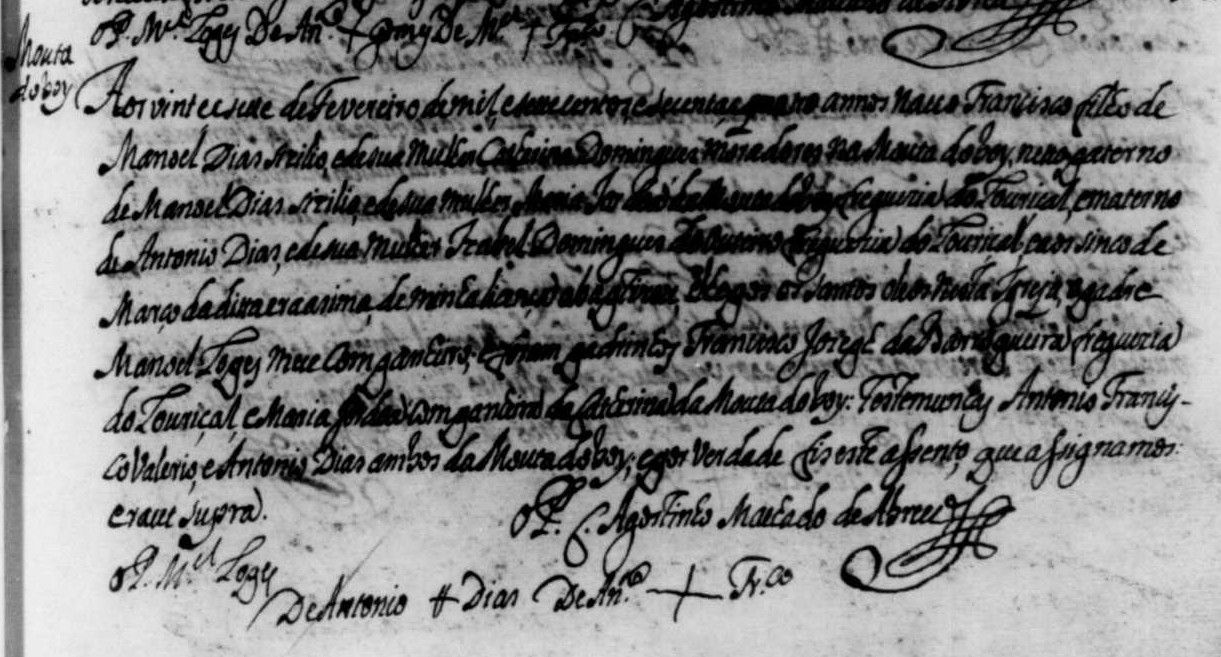 O P. M.el Lopes De An.to + Gomes De M.el + Fr.co
Mouta
do boy
Aos vinte e sete de Fevereiro de mil, e sete centos, e secenta, e quatro annos naceo Francisco filho de
Manoel Dias Atilio, e de sua mulher Catherina Domingues moradores na Mouta do boy, neto paterno
de Manoel Dias Atilio, e de sua mulher Maria Jordoa da Mouta do boy freguezia do Louriçal, e materno
de Antonio Dias, e de sua mulher Izabel Domingues do Outeiro freguezia do Louriçal, e aos sinco de
Março da dita era asima, de minha licença o baptizou, e lhe pos os santos oleos nesta Igreja, o padre
Manoel Lopes meu companheiro; e foram padrinhos Francisco Jorge da Barrosqueira freguezia
do Louriçal, e Maria Jordoa companheira da Catherina da Mouta do boy: Testemunhas Antonio Francis-
co Valerio, e Antonio Dias ambos da Mouta do boy; e por verdade fis este assento, que assignamos:
era ut supra.
O P. C. Agostinho Machado de Abreu
O P. M.el Lopes
De Antonio ++ Dias De An.to + Fr.co